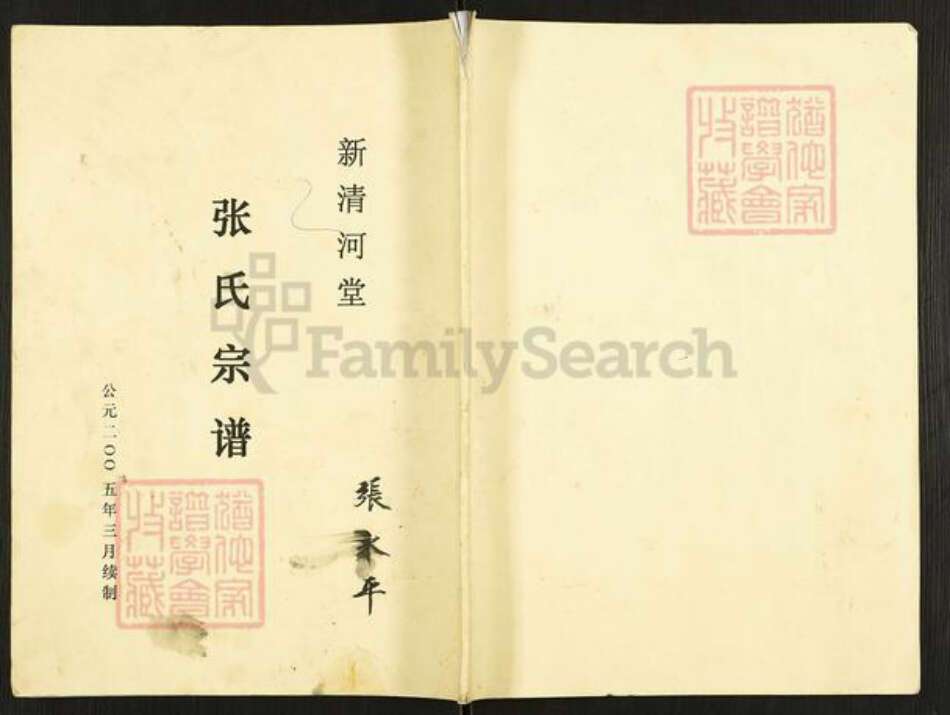 新清河堂
张氏宗谱
公元二〇〇五年三月续制
張永年
猶他家
譜學會
收藏
猶他家
譜學會
收藏
FamilySearch